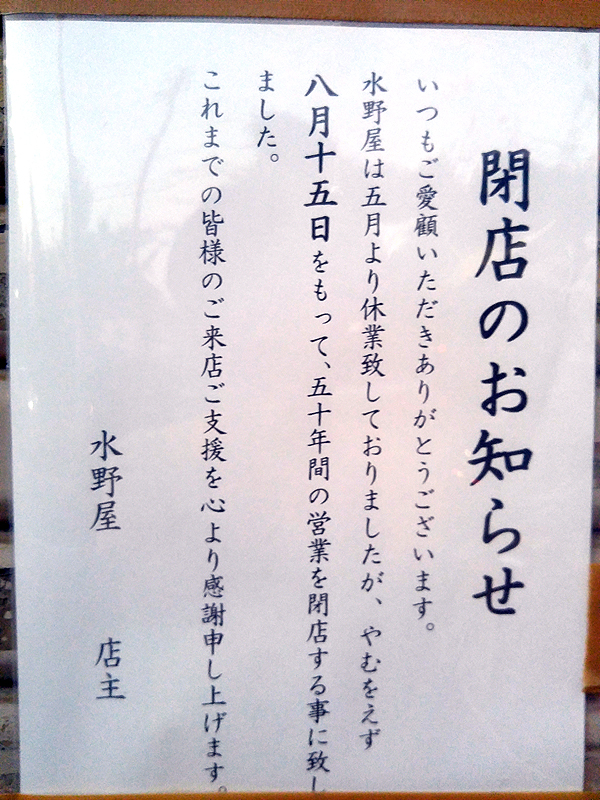 閉店のお知らせ
いつもご愛顧いただきありがとうございます。
水野屋は五月より休業致しておりましたが、やむをえず
八月十五日をもって、五十年間の営業を閉店する事に致し
ました。
これまでの皆様のご来店ご支援を心より感謝申し上げます。
水野屋　店主